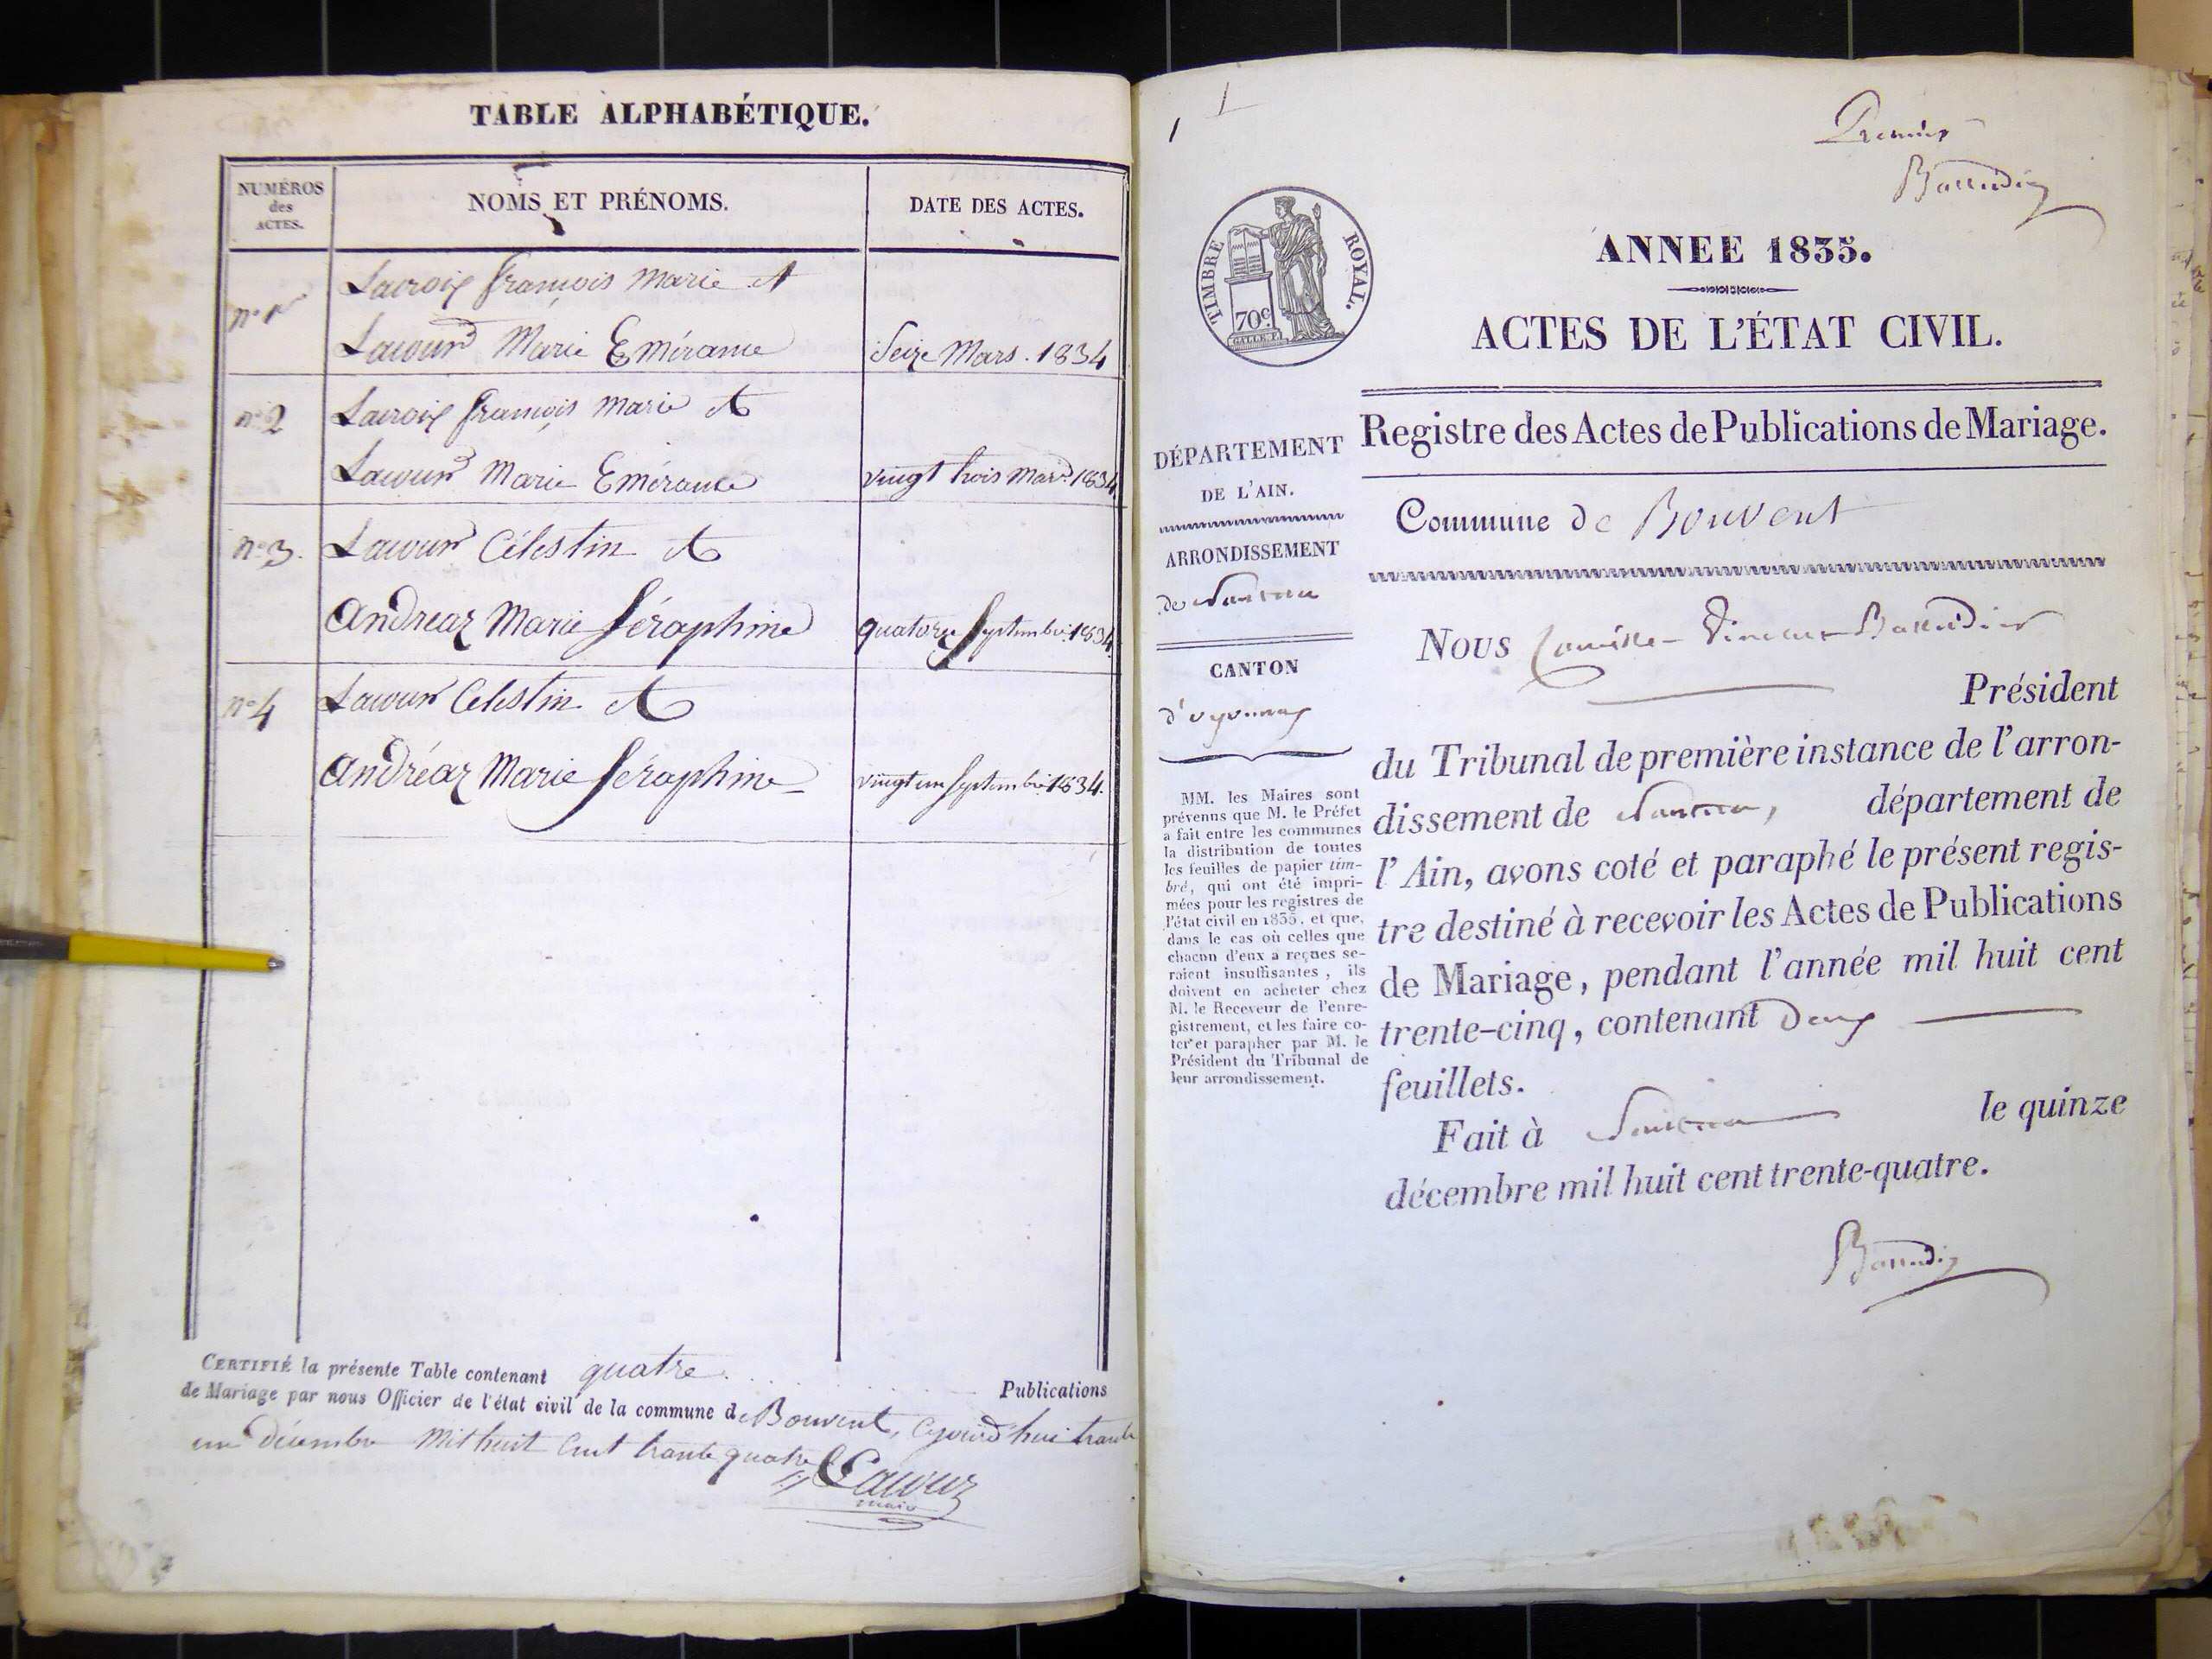 TABLE ALPHABÉTIQUE.
NUMÉROS
des
ACTES.
NOMS ET PRÉNOMS.
DATE DES ACTES.
n° 1er
Lacroix françois marie et
Lacour Marie Emérance
Seize Mars. 1834
n°2
Lacroix françois marie et
Lacour Marie Emérance
vingt trois Mars 1834
n°3.
Lacour Célestin et
andréaz Marie Séraphine
quatorze Septembre 1834
n°4
Lacour Célestin et
andréaz Marie Séraphine
vingt un Septembre 1834.
CERTIFIÉ la présente Table contenant quatre Publications
de Mariage par nous Officier de l'état civil de la commune de Bouvent, Cejourd'hui trente
un Décembre Mil huit Cent trente quatre
Lacour
maire
1
Premier
ANNEE 1835.
TIMBRE ROYAL.
70c.
ACTES DE L'ÉTAT CIVIL.
DÉPARTEMENT
DE L'AIN.
ARRONDISSEMENT
de Nantua
CANTON
d'oyonnax
MM. les Maires sont
prévenus que M. le Préfet
a fait entre les communes
la distribution de toutes
les feuilles de papier tim-
bré, qui ont été impri-
mées pour les registres de
l'état civil en 1835, et que,
dans le cas où celles que
chacun d'eux a reçues se-
raient insuffisantes, ils
doivent en acheter chez
M. le Receveur de l'enre-
gistrement, et les faire co-
ter et parapher par M. le
Président du Tribunal de
leur arrondissement.
Registre des Actes de Publications de Mariage.
Commune de Bouvent
Nous Camille Vincent
Président
du Tribunal de première instance de l'arron-
dissement de Nantua, département de
l'Ain, avons coté et paraphé le présent regis-
tre destiné à recevoir les Actes de Publications
de Mariage, pendant l'année mil huit cent
trente-cinq, contenant Deux
feuillets.
Fait à Nantua le quinze
décembre mil huit cent trente-quatre.